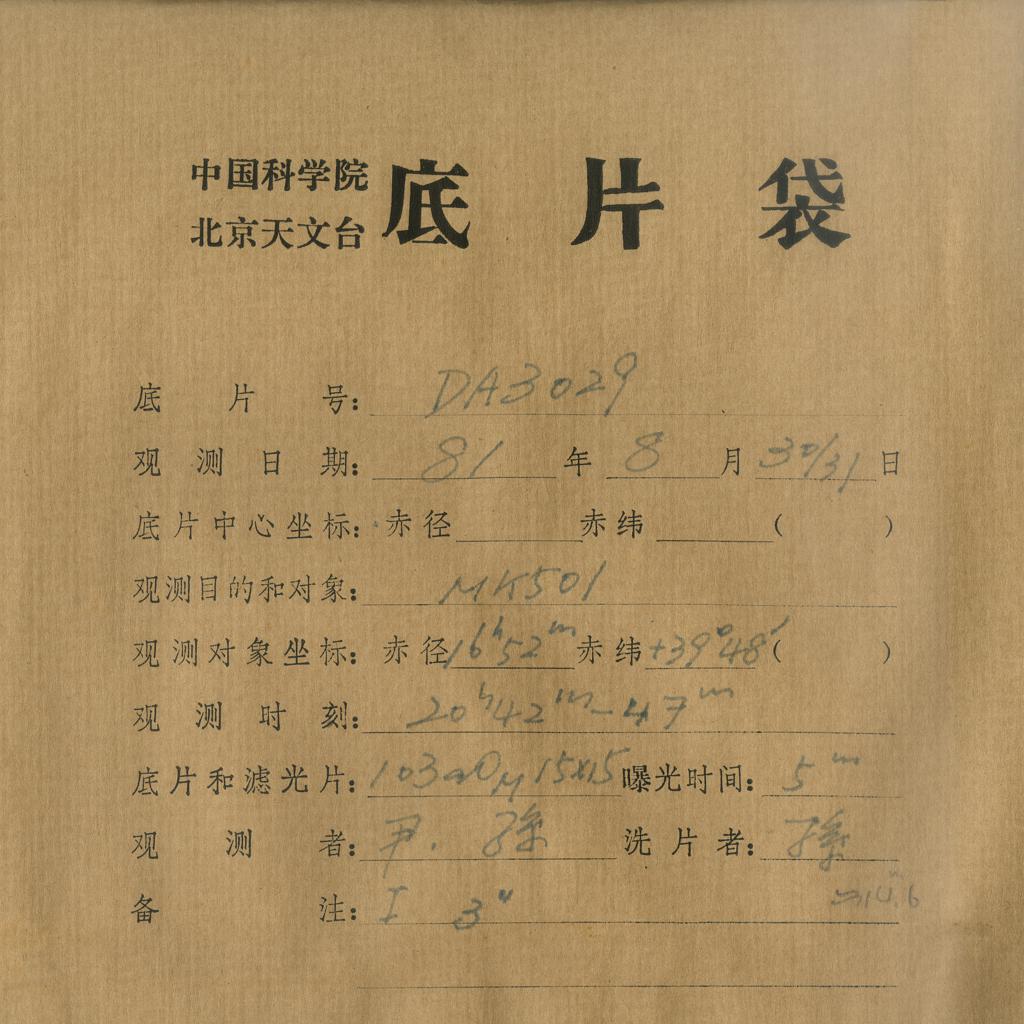 中国科学院
北京天文台
底片袋
底片号：DA3029
观测日期：81年8月30/31日
底片中心坐标：赤径 赤纬 （ ）
观测目的和对象：MK501
观测对象坐标：赤径16h52m赤纬+39°48′（ ）
观测时刻：20h42m-47m
底片和滤光片：103aO M 15x15 曝光时间：5m
观测者：尹. 孫 洗片者：孫
备注：I 3"